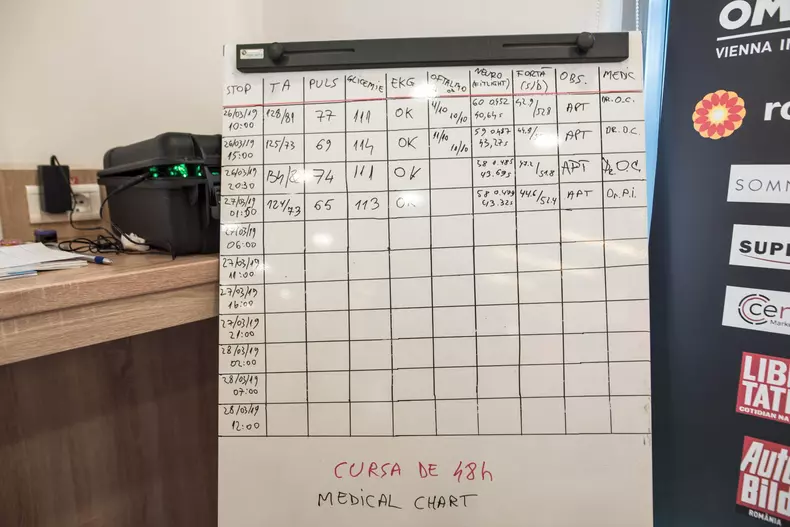 STOP TA PULS GLICEMIE EKG OFTALMO NEURO (FITLIGHT) FORTĂ (s/b) OBS. MEDIC
26/03/19 10:00 128/81 77 111 OK 10/10 60 0,452 40,64s 42.9/52.8 APT DR.O.C.
26/03/19 15:00 125/73 69 114 OK 10/10 59 0.487 43,27s APT DR.O.C.
26/03/19 20:30 74 111 OK 0.485 43.69s APT O.C.
27/03/19 01:00 124/73 65 113 OK 58 0.479 43.32s 44.6/52.4 APT Dr.P.i.
27/03/19 06:00
27/03/19 11:00
27/03/19 16:00
27/03/19 21:00
28/03/19 02:00
28/03/19 07:00
28/03/19 12:00
CURSA DE 48h
MEDICAL CHART
VIENNA IN
SOMN
SUPE
Cer
Marke
LIB
TAT
COTIDIAN NA
Auto
Bild
ROMÂNIA